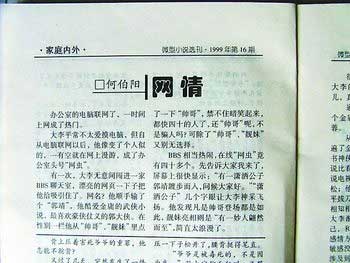 ·家庭内外·
微型小说选刊·1999年第16期
□何伯阳
网情
办公室的电脑联网了,一时间
上网成了热门。
大李平常不太爱摸电脑,但自
从电脑联网以后,他像变了个人似
的,一有空就在网上漫游,成了办
公室头号"网虫"。
有一次,大李无意间闯进一家
BBS聊天室,漂亮的网页一下子把
他给吸引住了。网名?他顺手输了
个"郭靖"。他酷爱金庸的武侠小
说,最喜欢豪侠仗义的郭大侠。在
性别一栏他从"帅哥"、"靓妹"里点
了一下"帅哥",禁不住暗笑起来,
都快四十的人了,还"帅哥"呢,不
是骗人吗?可除了"帅哥"、"靓妹"
又别无选择。
BBS相当热闹,在线"网虫"竟
有四十多个。先告诉大家我来了,
屏幕上很快显示:"有一潇洒公子
郭靖踱步而入,问候大家好。""潇
洒公子"几个字都让大李神采飞
扬。他发现凡是帅哥登场都是如
此,靓妹亮相则是"有一妙人翩然
而至",简直太浪漫了。